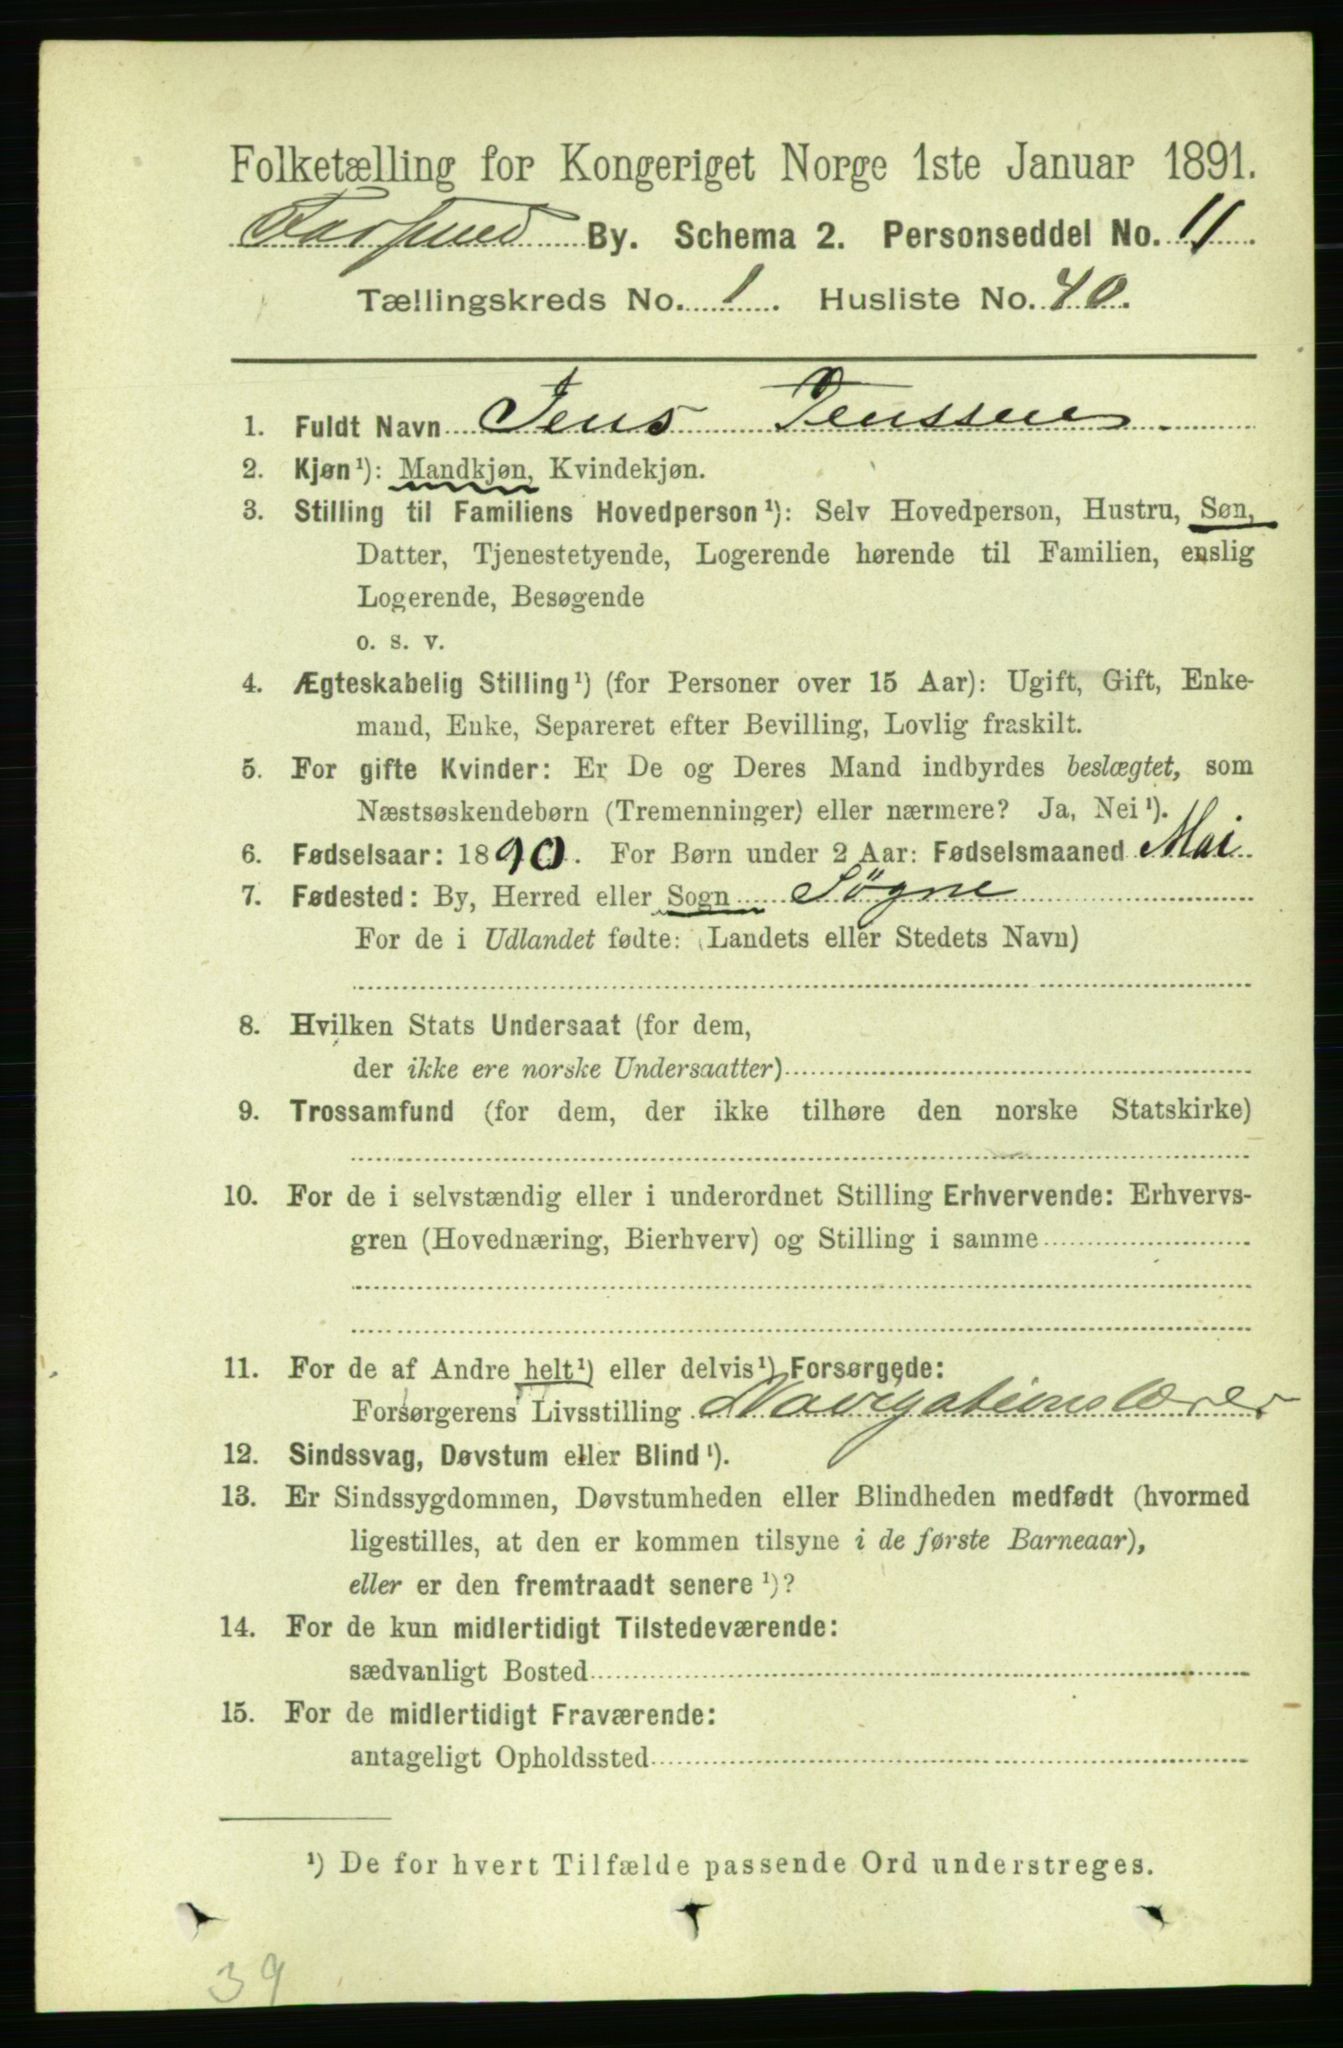 Folketælling for Kongeriget Norge 1ste Januar 1891.
Farsund By. Schema 2. Personseddel No. 11
Tællingskreds No. 1. Husliste No. 40.
1. Fuldt Navn Jens Jenssen.
2. Kjøn¹): Mandkjøn, Kvindekjøn.
3. Stilling til Familiens Hovedperson¹): Selv Hovedperson, Hustru, Søn,
Datter, Tjenestetyende, Logerende hørende til Familien, enslig
Logerende, Besøgende
o. s. v.
4. Ægteskabelig Stilling¹) (for Personer over 15 Aar): Ugift, Gift, Enke-
mand, Enke, Separeret efter Bevilling, Lovlig fraskilt.
5. For gifte Kvinder: Er De og Deres Mand indbyrdes beslægtet, som
Næstsøskendebørn (Tremenninger) eller nærmere? Ja, Nei¹).
6. Fødselsaar: 1890. For Børn under 2 Aar: Fødselsmaaned Mai
7. Fødested: By, Herred eller Sogn Søgne
For de i Udlandet fødte: (Landets eller Stedets Navn)
8. Hvilken Stats Undersaat (for dem,
der ikke ere norske Undersaatter)
9. Trossamfund (for dem, der ikke tilhøre den norske Statskirke)
10. For de i selvstændig eller i underordnet Stilling Erhvervende: Erhvervs-
gren (Hovednæring, Bierhverv) og Stilling i samme
11. For de af Andre helt¹) eller delvis¹) Forsørgede:
Forsørgerens Livsstilling Navigationslærer
12. Sindssvag, Døvstum eller Blind¹).
13. Er Sindssygdommen, Døvstumheden eller Blindheden medfødt (hvormed
ligestilles, at den er kommen tilsyne i de første Barneaar),
eller er den fremtraadt senere¹)?
14. For de kun midlertidigt Tilstedeværende:
sædvanligt Bosted
15. For de midlertidigt Fraværende:
antageligt Opholdssted
¹) De for hvert Tilfælde passende Ord understreges.
39